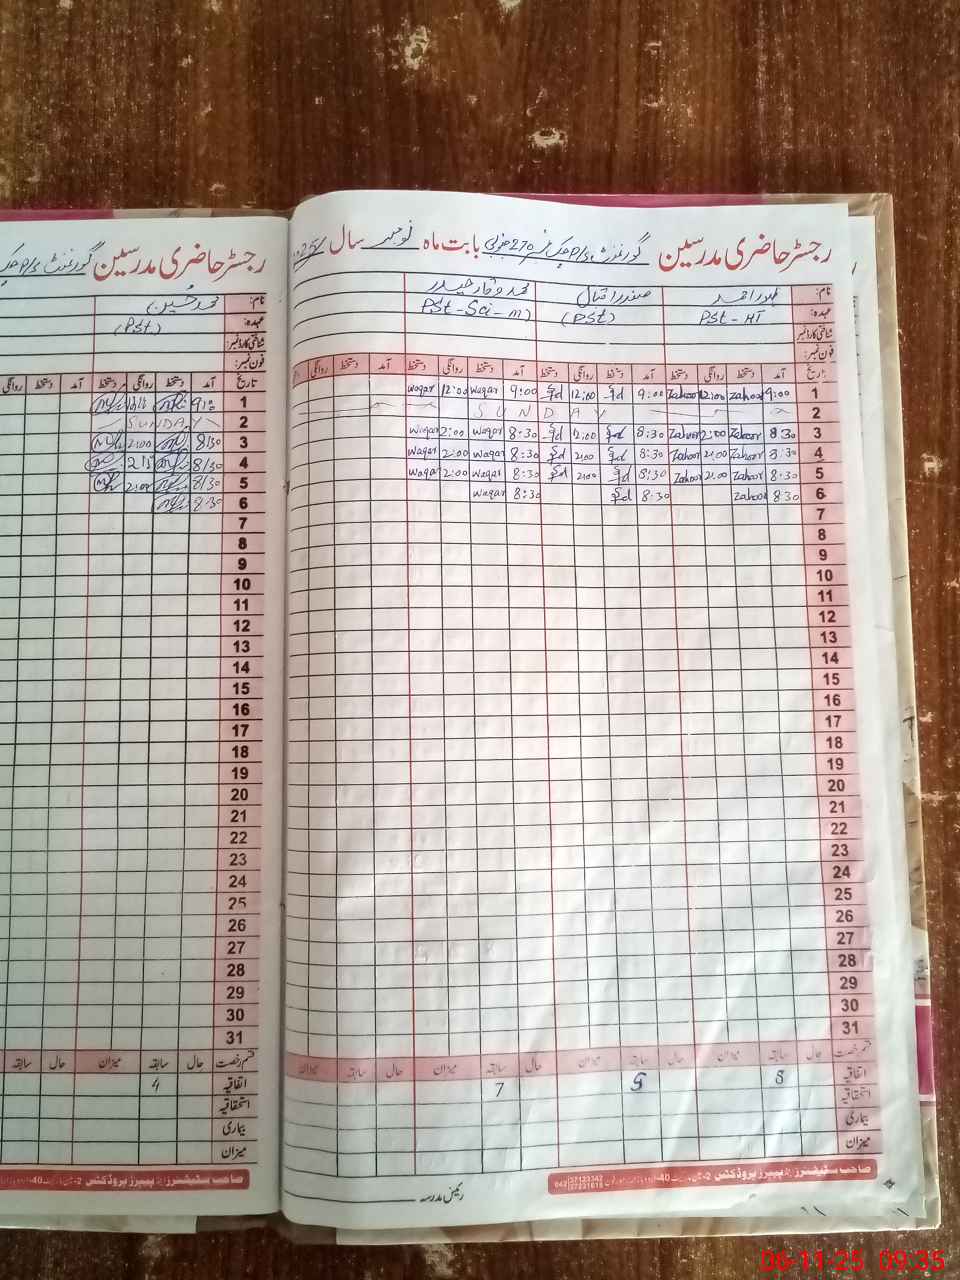 رجسٹر حاضری مدرسین گورنمنٹ P/S چک نمبر 270 جنوبی بابت ماہ نومبر سال 2025
نام: ظہور احمد صفدر اقبال محمد وقار حیدر
عہدہ: PST - HT (PST) PST-Sci-m)
شناختی کارڈ نمبر:
فون نمبر:
تاریخ آمد دستخط روانگی دستخط آمد دستخط روانگی دستخط آمد دستخط روانگی دستخط آمد دستخط روانگی
1 9:00 Zahoor 12:00 Zahoor 9:00 12:00 9:00 Waqar 12:00 Waqar
2 SUNDAY
3 8:30 Zahoor 2:00 Zahoor 8:30 2:00 8:30 Waqar 2:00 Waqar
4 8:30 Zahoor 2:00 Zahoor 8:30 2:00 8:30 Waqar 2:00 Waqar
5 8:30 Zahoor 2:00 Zahoor 8:30 2:00 8:30 Waqar 2:00 Waqar
6 8:30 Zahoor 8:30 8:30 Waqar
7
8
9
10
11
12
13
14
15
16
17
18
19
20
21
22
23
24
25
26
27
28
29
30
31
قسم رخصت حال سابقہ میزان حال سابقہ میزان حال سابقہ میزان حال سابقہ میزان
اتفاقیہ 8 5 7
استحقاقیہ
بیماری
میزان
صاحب سٹیشنرز اینڈ پیپرز پروڈکٹس
042 37123342
رئیس مدرسہ
رجسٹر حاضری مدرسین گورنمنٹ P/S چک
نام: محمد حسین
عہدہ: (PST)
شناختی کارڈ نمبر:
فون نمبر:
تاریخ آمد دستخط روانگی دستخط آمد دستخط روانگی
1
2 SUNDAY
3 8:30 2:00
4 8:30
5 8:30 2:00
6 8:30
7
8
9
10
11
12
13
14
15
16
17
18
19
20
21
22
23
24
25
26
27
28
29
30
31
قسم رخصت حال سابقہ میزان حال سابقہ
اتفاقیہ 4
استحقاقیہ
بیماری
میزان
صاحب سٹیشنرز اینڈ پیپرز پروڈکٹس
06-11-25 09:35